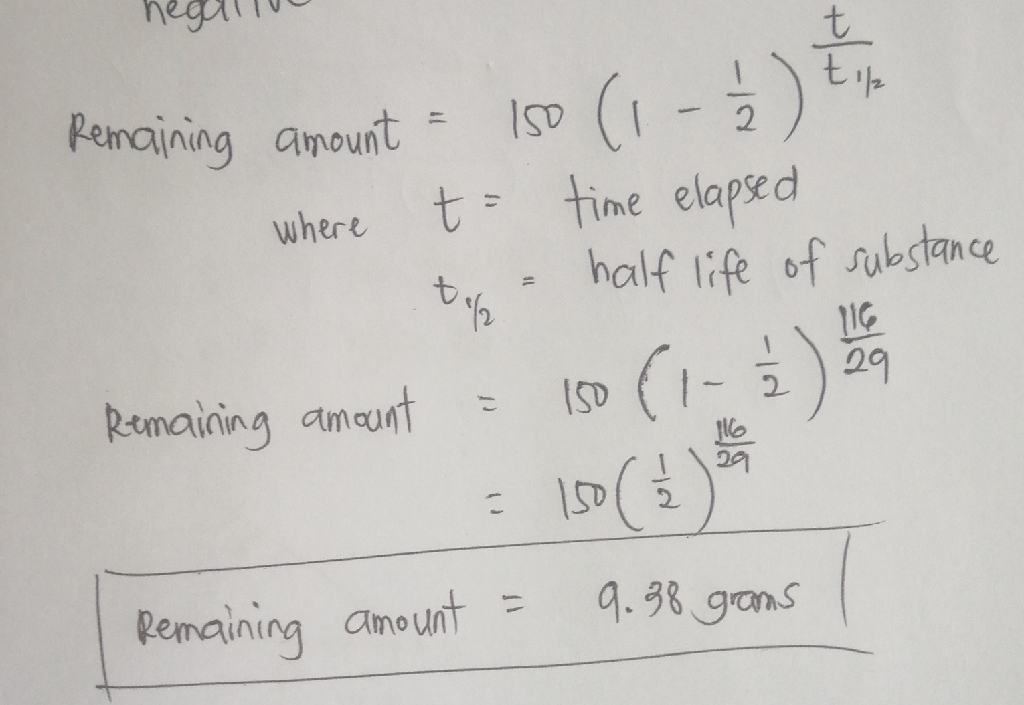 Remaining amount = 150 (1 - 1/2)^(t/t1/2)
where t = time elapsed
t1/2 = half life of substance
Remaining amount = 150 (1 - 1/2)^(116/29)
= 150 (1/2)^(116/29)
Remaining amount = 9.38 grams